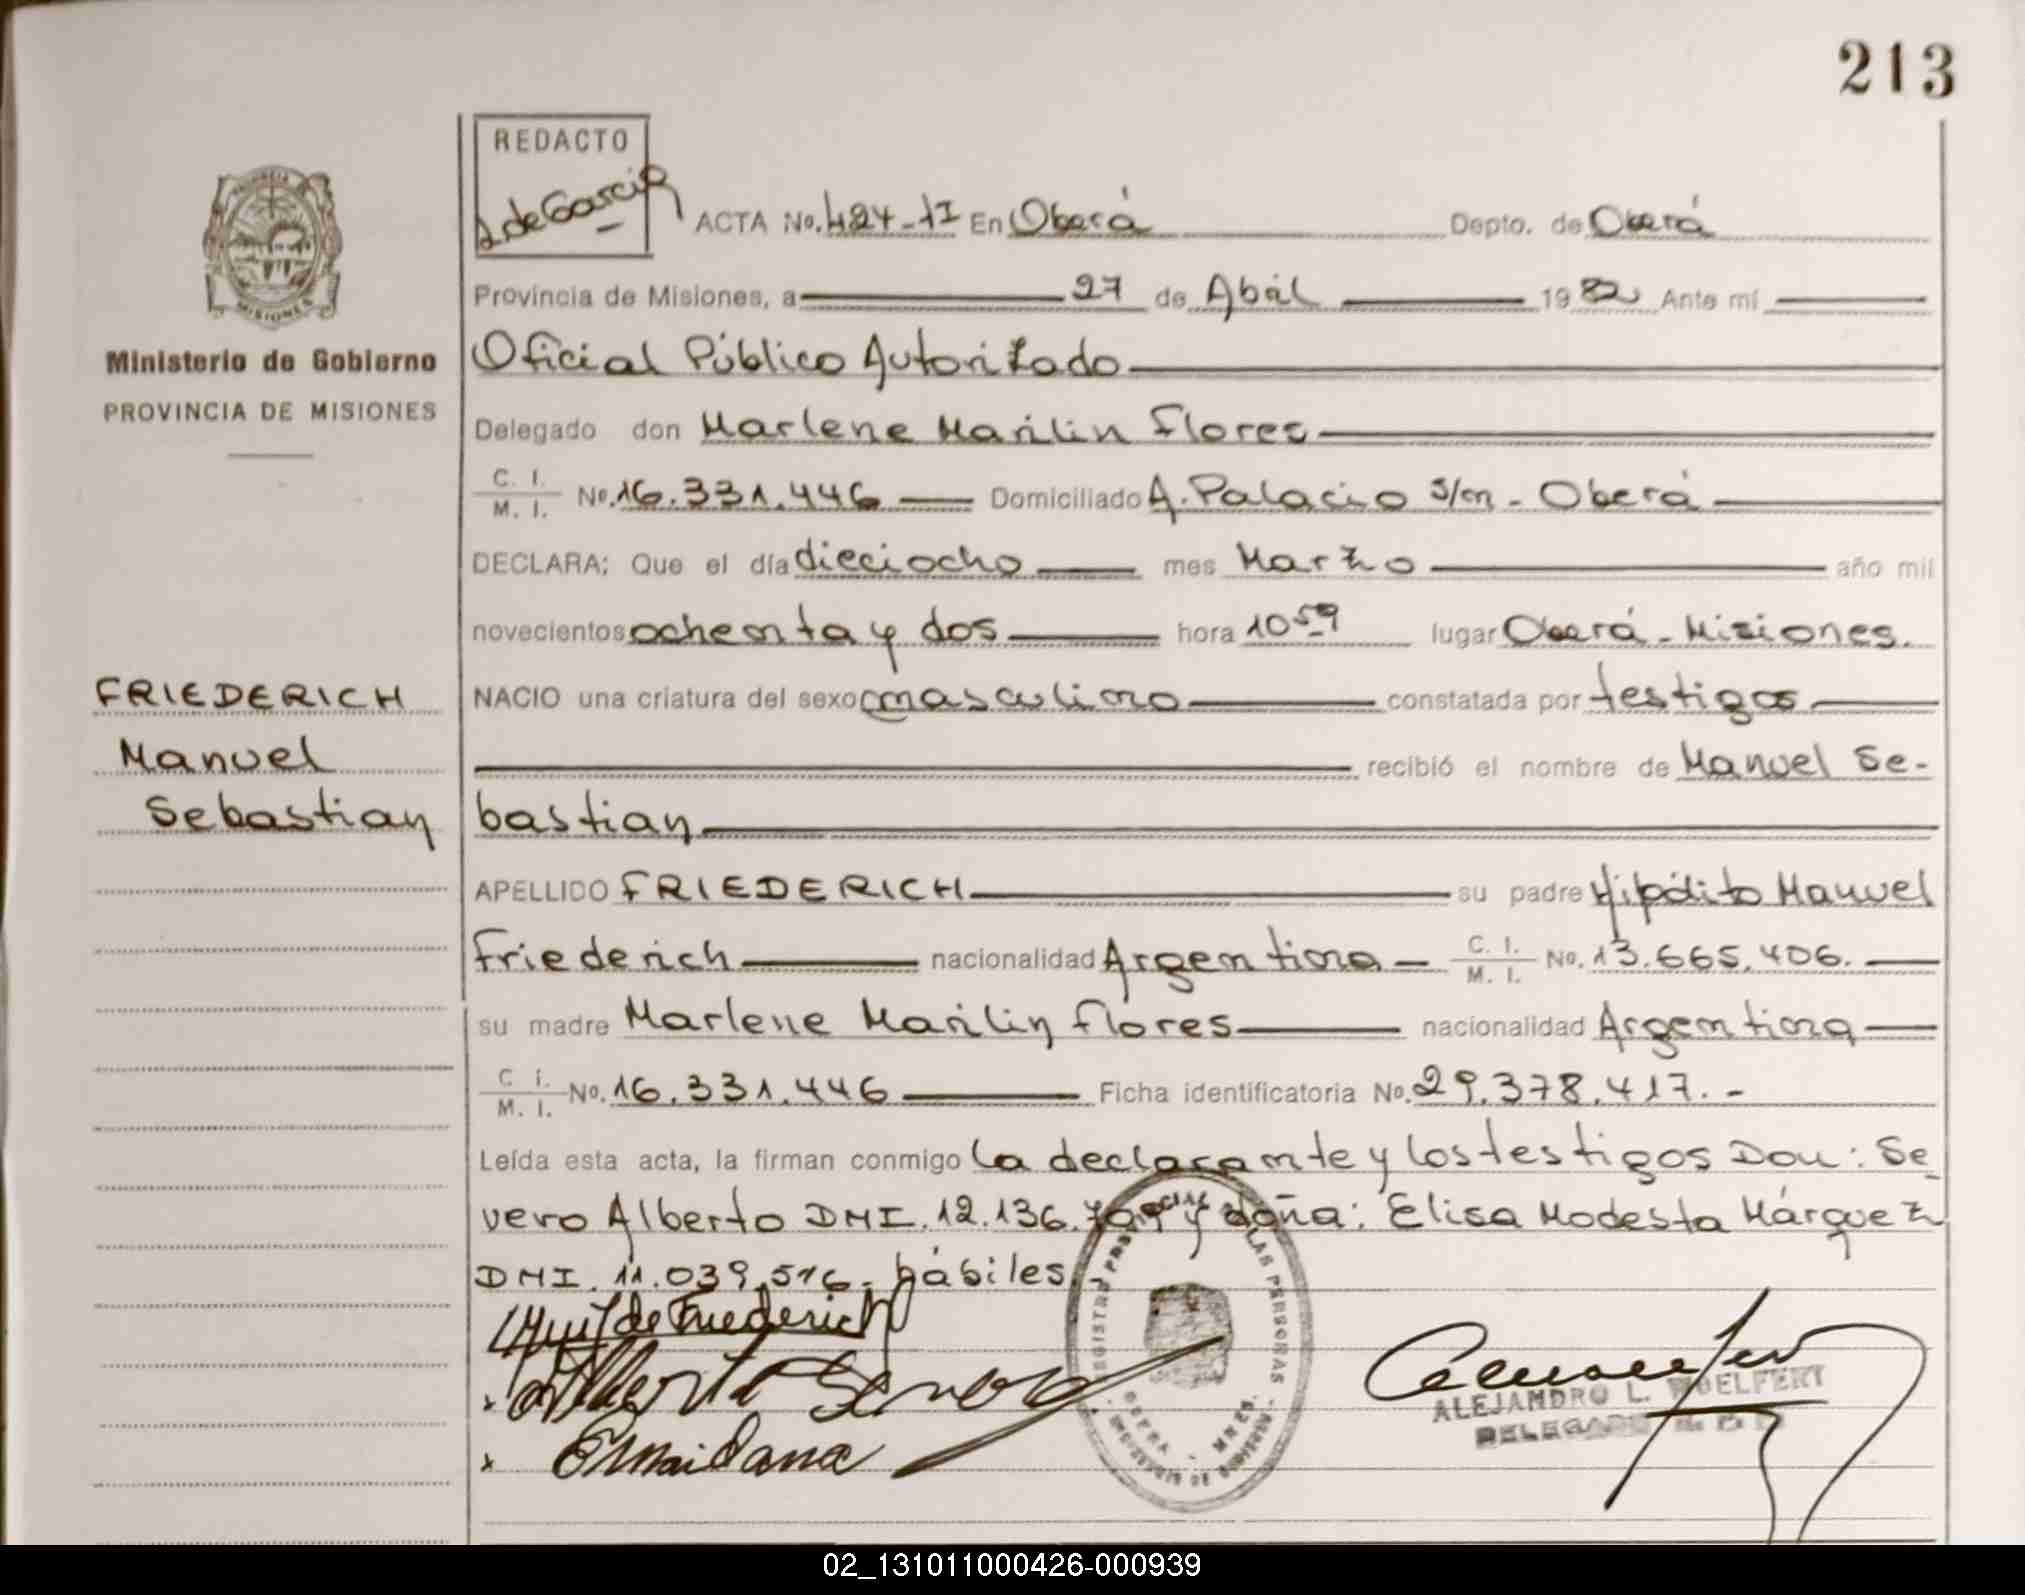 213
REDACTO
ACTA No. 424-II En Oberá Depto. de Oberá
Provincia de Misiones, a 27 de Abril 1982 Ante mí
Ministerio de Gobierno
PROVINCIA DE MISIONES
Oficial Público Autorizado
Delegado don Marlene Marilin Flores
C. I. / M. I. No. 16.331.446 Domiciliado A. Palacio s/n - Oberá
DECLARA: Que el día dieciocho mes Marzo año mil
novecientos ochenta y dos hora 10 59 lugar Oberá - Misiones.
FRIEDERICH
Manuel
Sebastian
NACIO una criatura del sexo masculino constatada por testigos
recibió el nombre de Manuel Se-
bastian
APELLIDO FRIEDERICH su padre Hipólito Manuel
Friederich nacionalidad Argentina C. I. / M. I. No. 13.665.406.
su madre Marlene Marilin Flores nacionalidad Argentina
C. I. / M. I. No. 16.331.446 Ficha identificatoria No. 29.378.417.-
Leída esta acta, la firman conmigo la declarante y los testigos Don: Se-
vero Alberto DMI. 12.136. y doña: Elisa Modesta Márquez
DMI. 11.039.516. hábiles.
de Friederich
Alberto
ALEJANDRO L. WOELFERT
DELEGADO
02_131011000426-000939